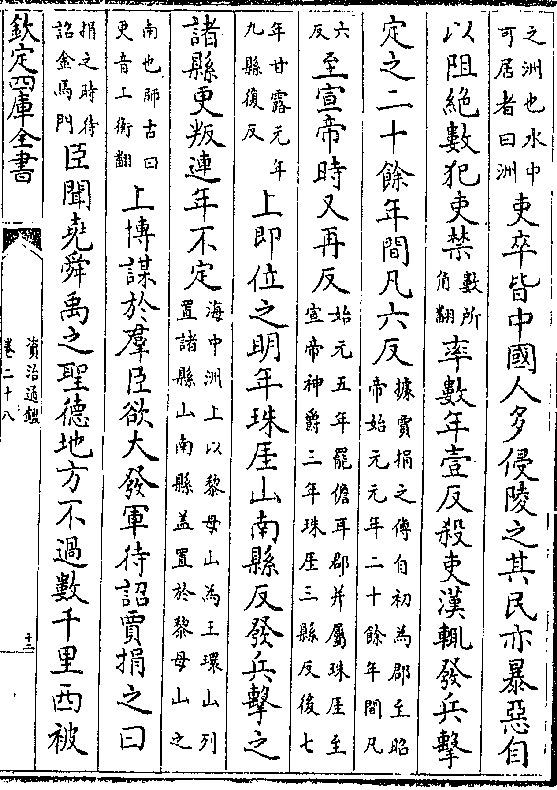 之洲也水中
可居者曰洲
吏卒皆中國人多侵陵之其民亦暴惡自
以阻絶數犯吏禁
數所
角翻
率數年壹反殺吏漢輒發兵擊
定之二十餘年間凡六反
據賈捐之傳自初為郡至昭
帝始元元年二十餘年間凡
六
反
至宣帝時又再反
始元五年罷儋耳郡并屬珠厓至
宣帝神爵三年珠厓三縣反後七
年甘露元年
九縣復反
上即位之明年珠厓山南縣反發兵擊之
諸縣更叛連年不定
海中洲上以黎母山為主環山列
置諸縣山南縣蓋置於黎母山之
南也師古曰
更音工衡翻
上博謀於羣臣欲大發軍待詔賈捐之曰
捐之時待
詔金馬門
臣聞堯舜禹之聖德地方不過數千里西被
欽定四庫全書
資治通鑑
卷二十八
十三